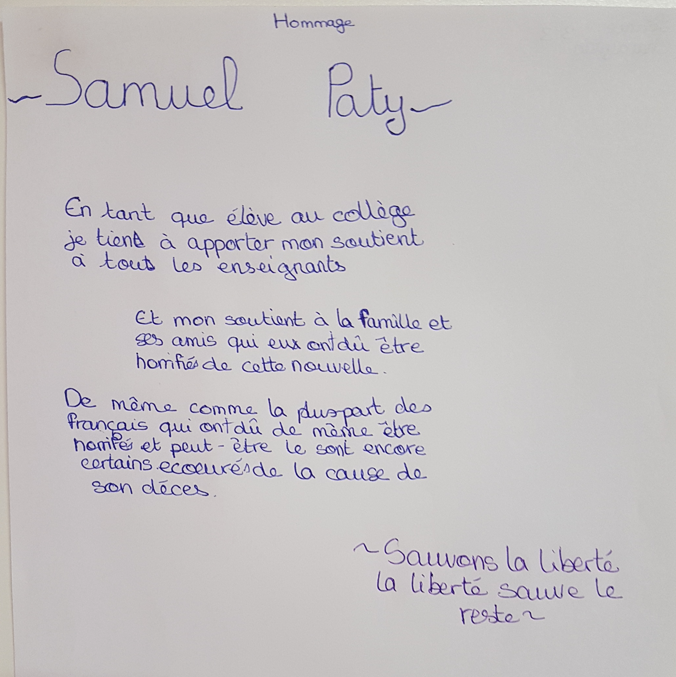 Hommage
~Samuel Paty~
En tant que élève au collège
je tiens à apporter mon soutient
à tous les enseignants
Et mon soutient à la famille et
ses amis qui eux ont dû être
horrifiés de cette nouvelle.
De même comme la plus part des
français qui ont dû de même être
horrifiés et peut-être le sont encore
certains ecoeurés de la cause de
son déces.
~Sauvons la liberté
la liberté sauve le
reste~